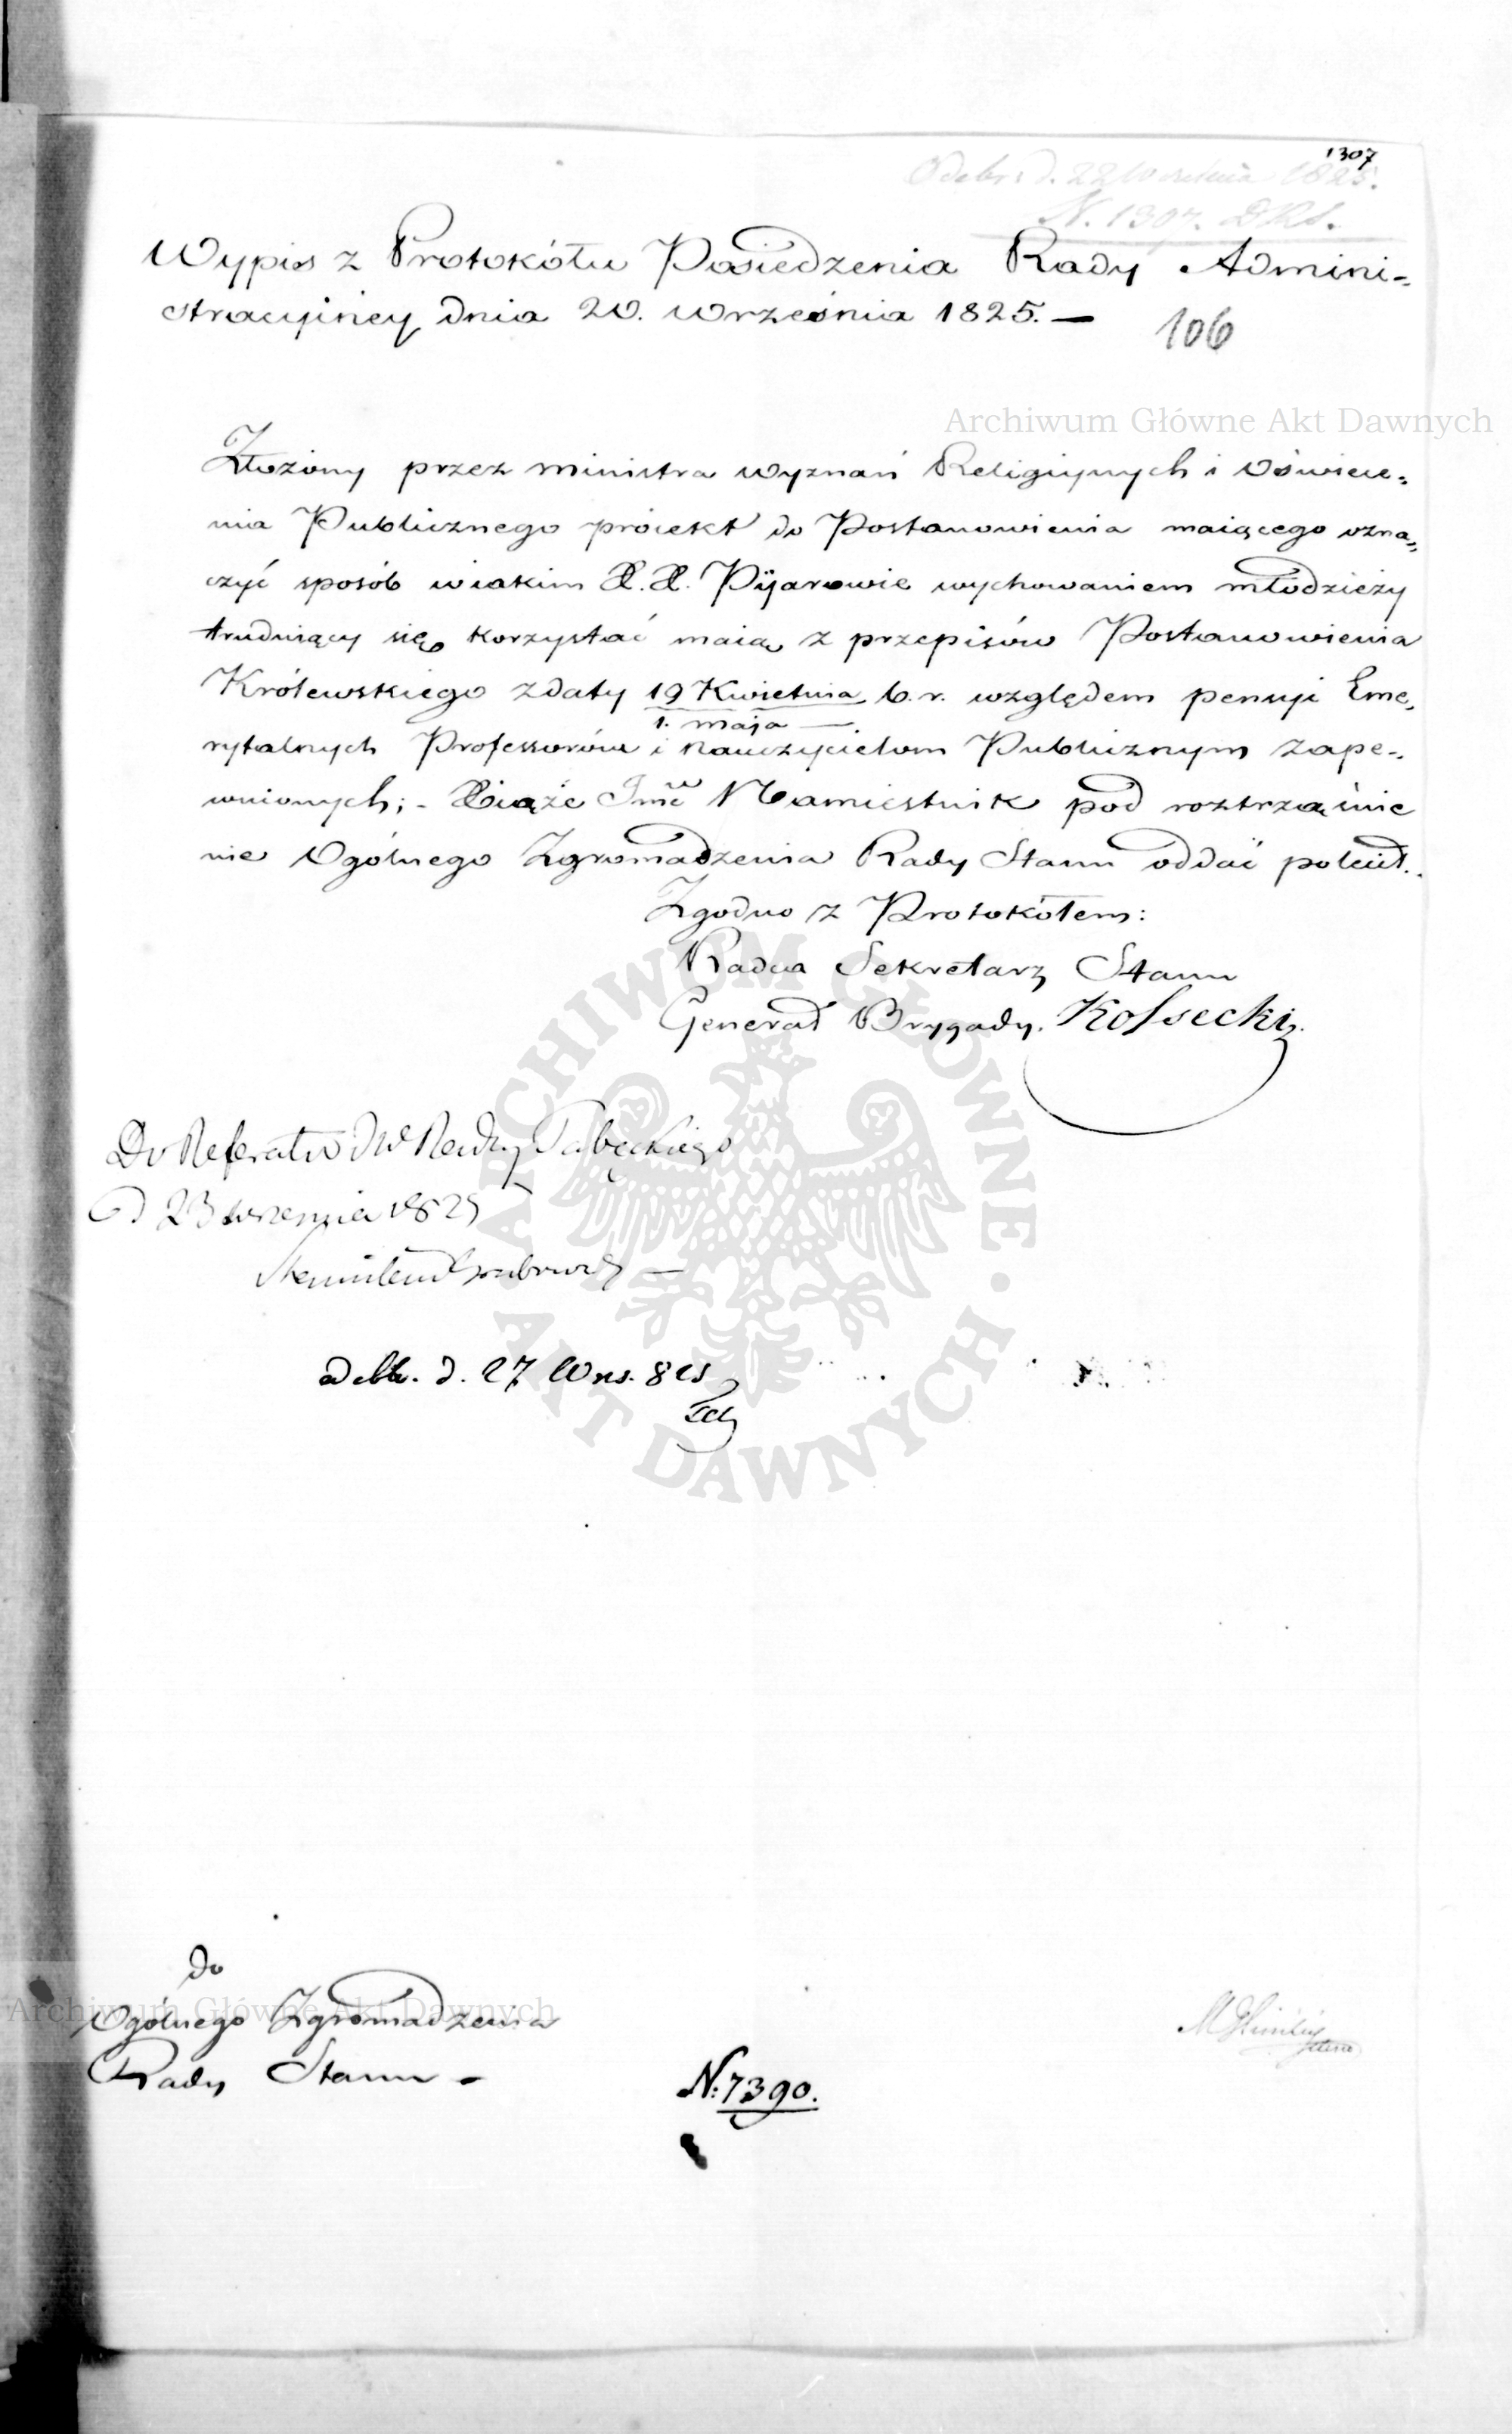 1307
Odebr. d. 22 Września 1825.
N. 1307. DRS.
Wypis z Protokółu Posiedzenia Rady Admini=
stracyiney dnia 20. Września 1825. —
106
Archiwum Główne Akt Dawnych
Złożony przez Ministra Wyznań Religiynych i Oświece=
nia Publicznego proiekt do Postanowienia maiącego ozna=
czyć sposób w iakim XX. Pijarowie wychowaniem młodzieży
trudniący się korzystać maią z przepisów Postanowienia
Królewskiego z daty 19 Kwietnia b. r. względem pensyi Eme=
1. maja —
rytalnych Professorów i Nauczycielom Publicznym zape=
wnionych; - Xiąże Jmć Namiestnik pod roztrząśnie
nie Ogólnego Zgromadzenia Rady Stanu oddać polecił.
Zgodno z Protokółem:
Radca Sekretarz Stanu
Generał Brygady. Kossecki.
Do Referatu JW Radcy
d 23 września 1825
odebr. d. 27 Wrs. 825
ARCHIWUM GŁÓWNE AKT DAWNYCH
do
Archiwum Główne Akt Dawnych
Ogólnego Zgromadzenia
Rady Stanu -
N: 7390.